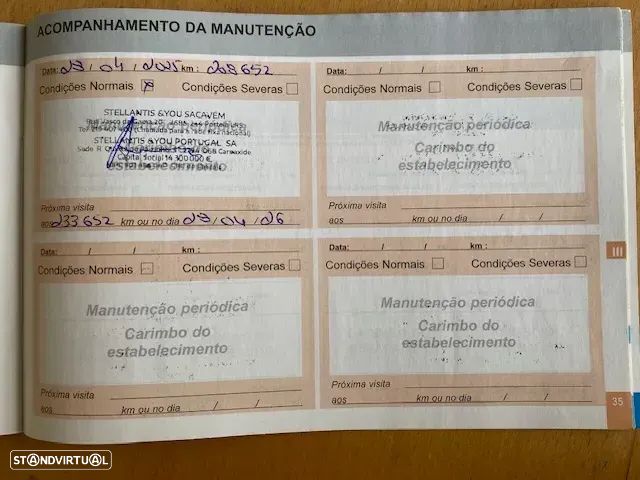 ACOMPANHAMENTO DA MANUTENÇÃO
Data: 28 / 04 / 2025 km : 208652
Condições Normais Condições Severas
STELLANTIS &YOU SACAVEM
STELLANTIS &YOU PORTUGAL SA
Capital Social 14 300 000 €
estabelecimento
Próxima visita
aos 233652 km ou no dia 28 / 04 / 26
Data: / / km :
Condições Normais Condições Severas
Manutenção periódica
Carimbo do
estabelecimento
Próxima visita
aos km ou no dia / /
Data: / / km :
Condições Normais Condições Severas
Manutenção periódica
Carimbo do
estabelecimento
Próxima visita
aos km ou no dia / /
Data: / / km :
Condições Normais Condições Severas
Manutenção periódica
Carimbo do
estabelecimento
Próxima visita
aos km ou no dia / /
III
35
STANDVIRTUAL